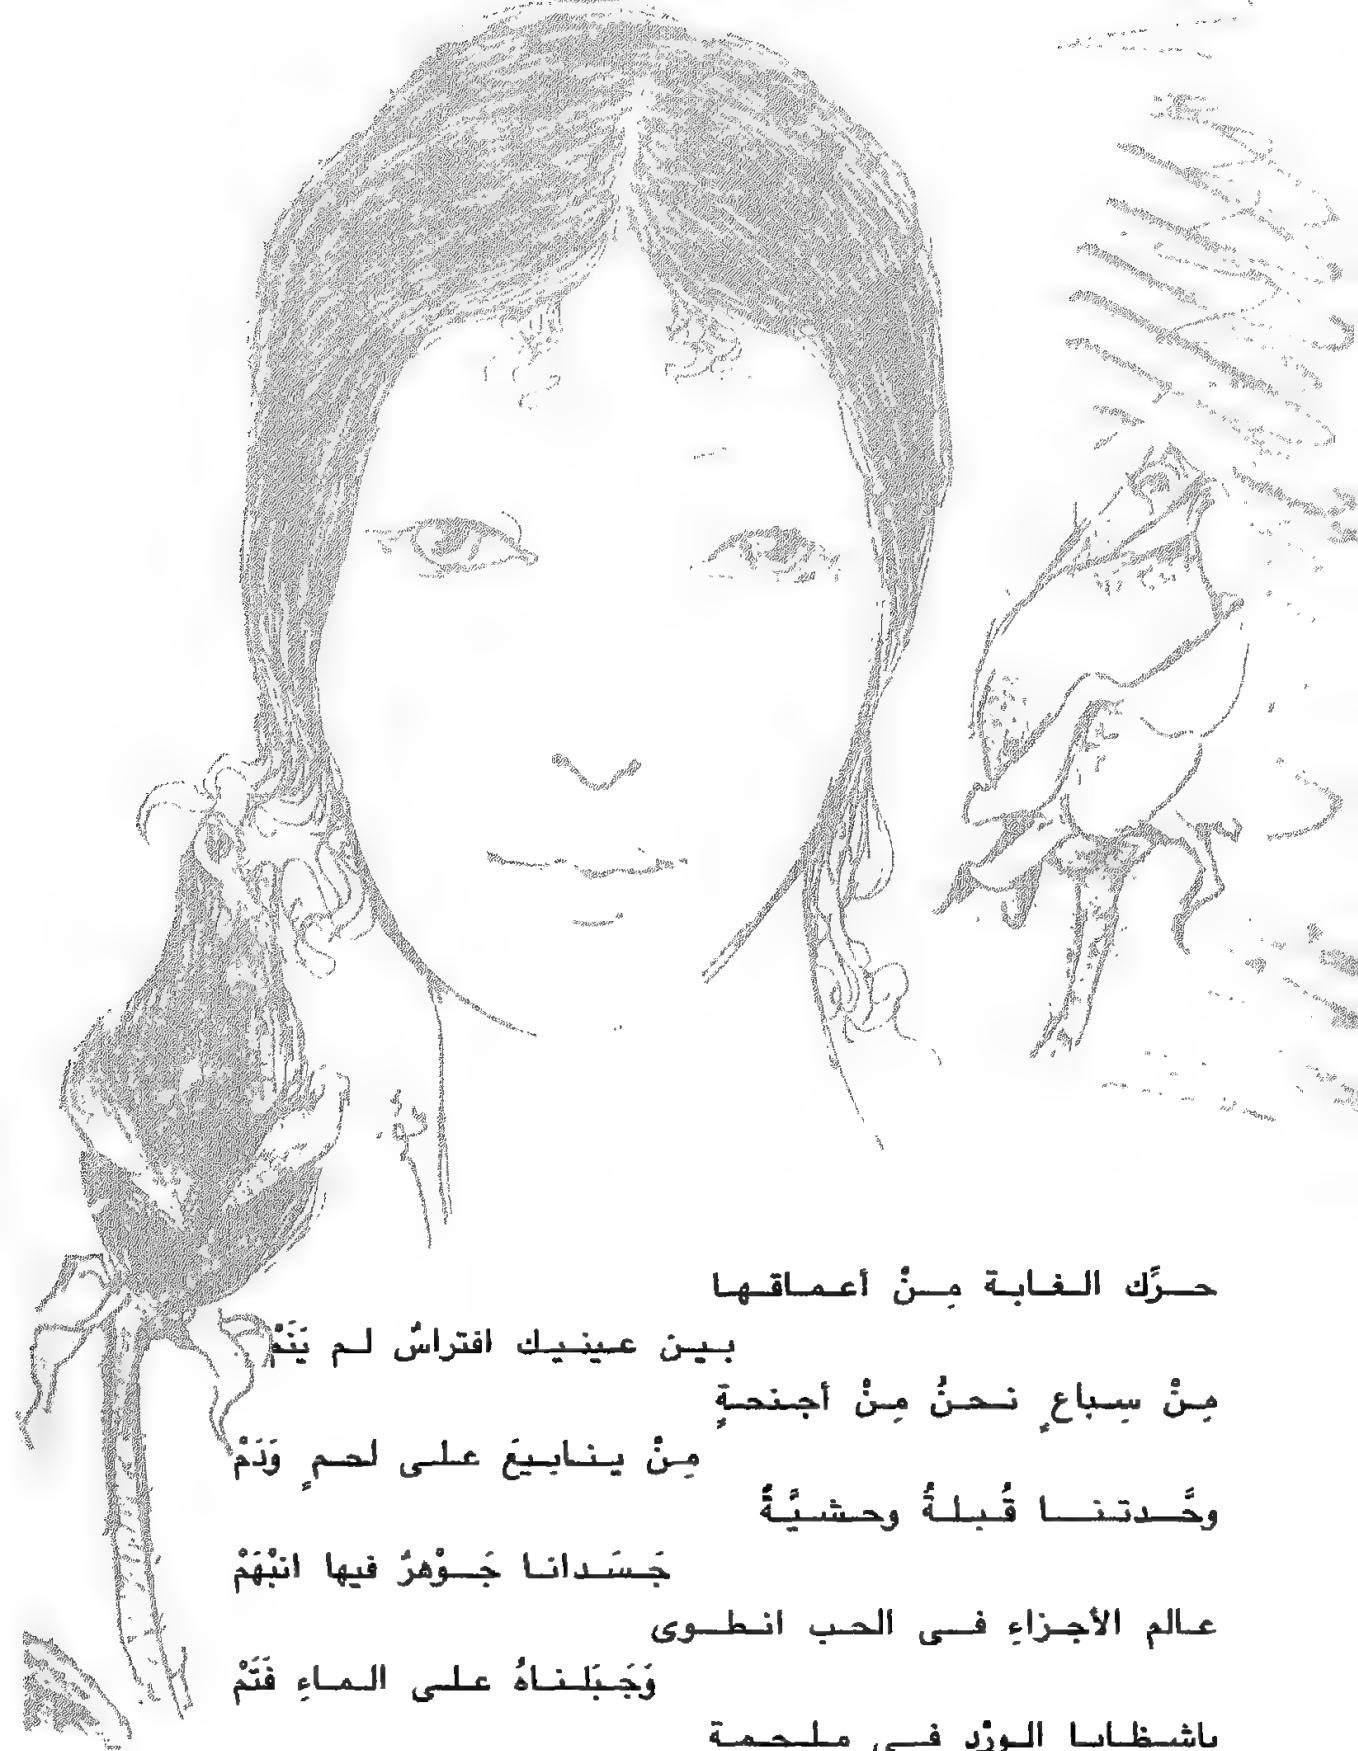 حرَّك الغابة مِنْ أعماقها
بين عينيك افتراسٌ لم يَنَمْ
مِنْ سِباعٍ نحنُ مِنْ أجنحةٍ
مِنْ ينابيعَ على لحمٍ وَدَمْ
وحَّدتنا قُبلةٌ وحشيَّةٌ
جَسَدانا جَوْهرٌ فيها انبْهَمْ
عالم الأجزاءِ في الحب انطوى
وَجَبَلناهُ على الماءِ فَتَمْ
ياشظايا الورْدِ في ملحمة